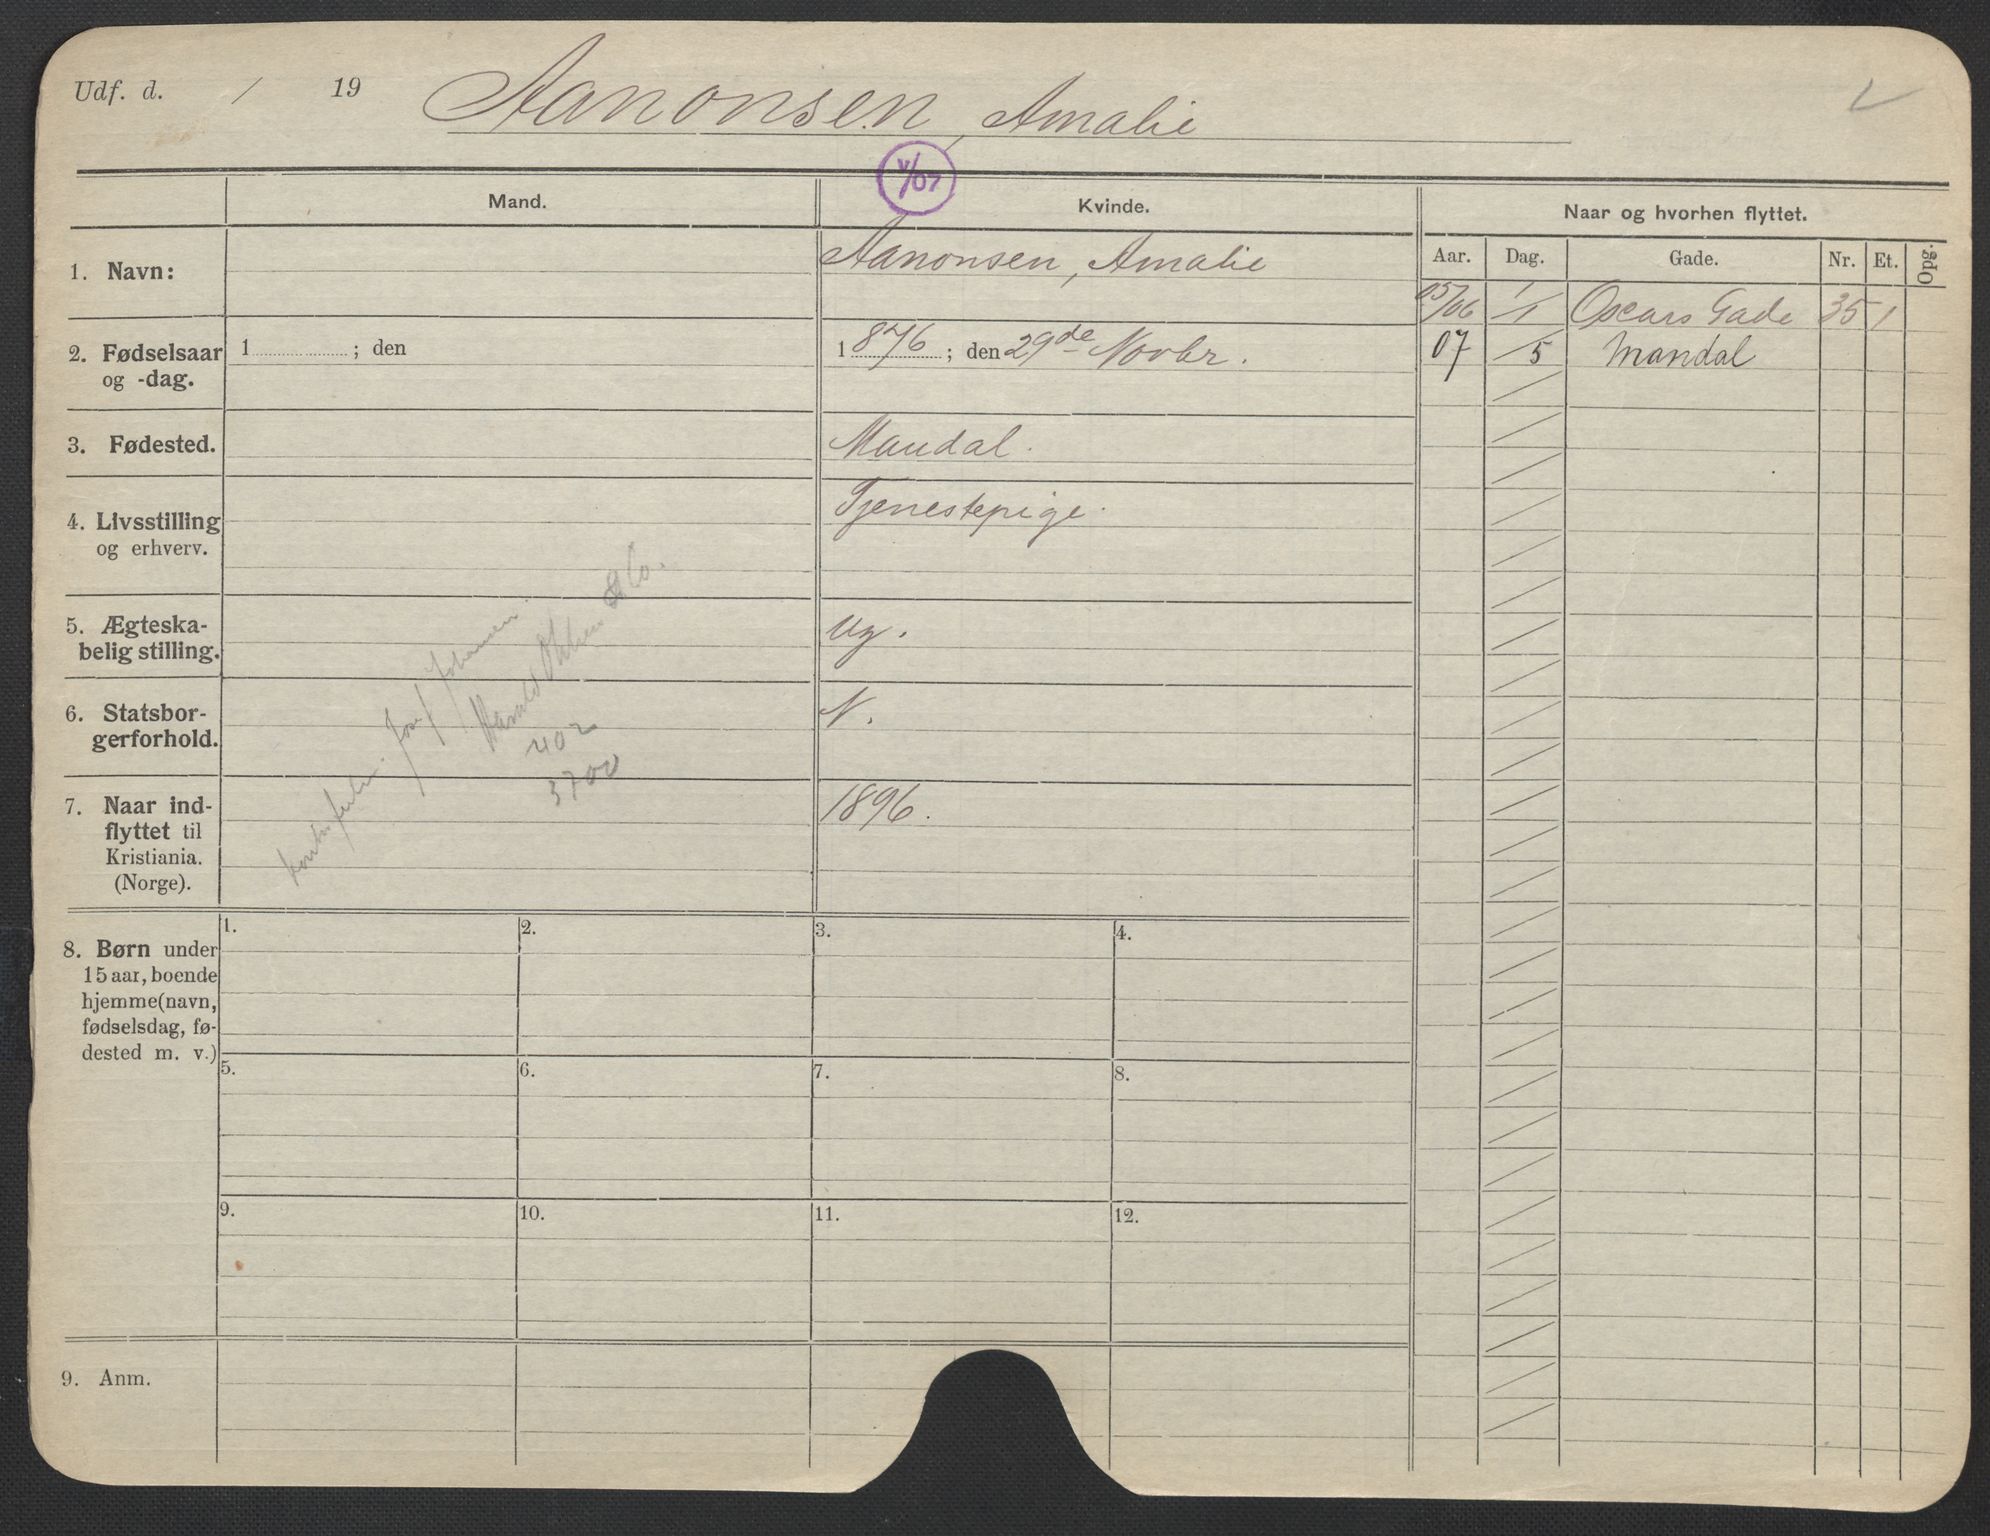 Udf. d. / 19 Aanonsen, Amalie
V/07
Mand. Kvinde. Naar og hvorhen flyttet.
Aar. Dag. Gade. Nr. Et. Opg.
1. Navn: Aanonsen, Amalie
05/06 1/1 Oscars Gade 35 1
2. Fødselsaar og -dag. 1 ; den 1876 ; den 29de Novbr.
07 /5 Mandal
3. Fødested. Mandal.
4. Livsstilling og erhverv. Tjenestepige.
5. Ægteska-
belig stilling. Ug.
6. Statsbor-
gerforhold. N.
7. Naar ind-
flyttet til
Kristiania.
(Norge). 1896.
Josef Johansen.
Harald & Co.
402
3700
8. Børn under
15 aar, boende
hjemme (navn,
fødselsdag, fø-
dested m. v.)
1. 2. 3. 4.
5. 6. 7. 8.
9. 10. 11. 12.
9. Anm.